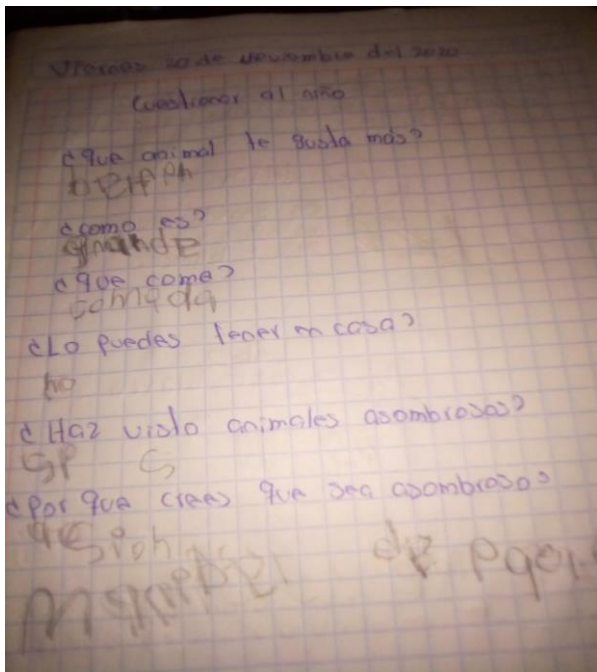 Viernes 20 de Noviembre del 2020
Cuestionar al niño
¿Que animal te gusta más?
¿como es?
grande
¿que come?
comada
¿Lo puedes tener en casa?
no
¿Haz visto animales asombrosos?
¿Por que crees que sea asombroso?
de